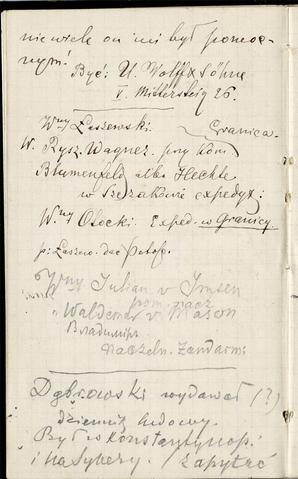 niewiele on mi był pomoc-
nym!
Być: U. Wolff & Söhne
V. Mittersteig 26.
Wny Laszewski.
Granica.
W. Rysz. Wagner. przy kom
Blumenfeld albo Hechte
w Szczakowie expedyt:
Wny Otocki. Exped. w Granicy
p: Laszew. dać
Wny Julian v
pom. nacz
"Waldemar v Mason
Владиміръ
naczeln. Żandarm:
Dąbrowski wydawał (?)
dziennik ludowy.
Był w Konstantynop.
i na Sybery. Zapytać